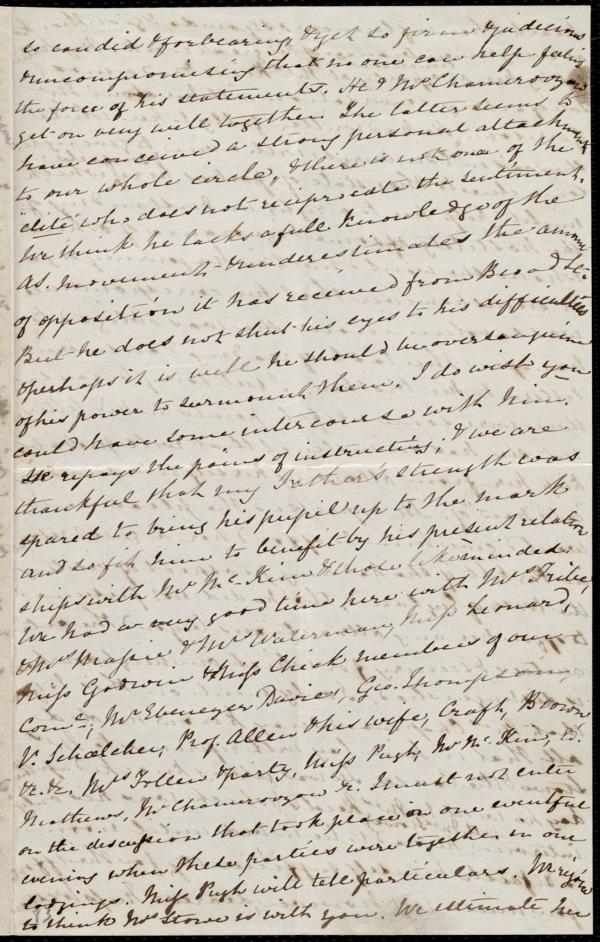 so candid & forbearing, & yet so firm & judicious
& uncompromising that no one can help feeling
the force of his statements. He & Mr Chamerovzow
get on very well together. The latter seems to
have conceived a strong personal attachment
to our whole circle, & there is not one of the
"élite" who does not reciprocate the sentiment.
We think he lacks a full knowledge of the
A.S. movement & underestimates the amount
of opposition it has received from Broad St.
But he does not shut his eyes to his difficulties
& perhaps it is well he should be oversanguine
of his power to surmount them. I do wish you
could have some intercourse with him.
He repays the pains of instructing; & we are
thankful that my Father's strength was
spared to bring his pupil up to the mark
and so fit him to benefit by his present relation
ships with Mr McKim & those likeminded.
We had a very good time here with Mrs Tribe,
& Mrs Massie & Mrs Waterman, Miss Leonard,
Miss Godwin & Miss Chick members of our
Come; Mr Ebenezer Davies, Geo. Thompson,
V. Schœlcher, Prof. Allen & his wife, Craft, Brown
&c. &c. Mrs Follen & party, Miss Pugh, Mr McKim, E.
Mathews, Mr Chamerovzow &c. I must not enter
on the discussion that took place on one eventful
evening when these parties were together in one
lodgings. Miss Pugh will tell particulars. We rejoice
to think Mrs Stowe is with you. We estimate her